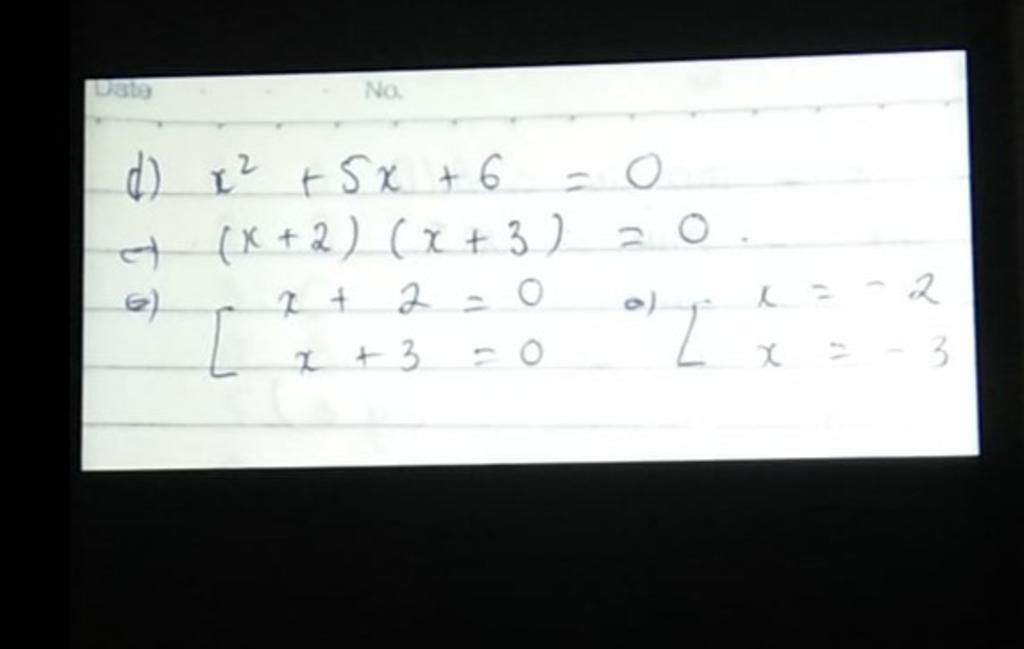 Date No.
d) x² + 5x + 6 = 0
⇔ (x + 2) (x + 3) = 0.
⇔ [ x + 2 = 0 ⇔ [ x = - 2
x + 3 = 0 x = - 3